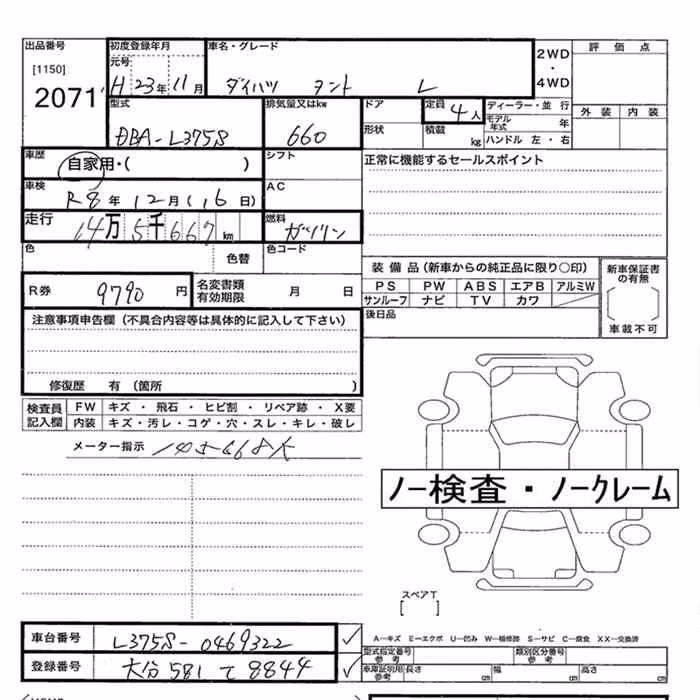 出品番号 初度登録年月 車名・グレード 2WD 評価点
[1150] 元号 ・
2071 H 23年 11月 ダイハツ タント L 4WD
型式 排気量又はkw ドア 定員 4人 ディーラー・並行 外装 内装
DBA-L375S 660 形状 積載 kg モデル年式 年
ハンドル 左・右
車歴 自家用・( ) シフト 正常に機能するセールスポイント
車検 R8年 12月(16日) AC
走行 14万5千667km 燃料 ガソリン
色 色替 色コード
装備品(新車からの純正品に限り〇印) 新車保証書の有無
R券 9790円 名変書類有効期限 月 日 PS PW ABS エアB アルミW
サンルーフ ナビ TV カワ
車載不可
注意事項申告欄(不具合内容等は具体的に記入して下さい) 後日品
修復歴 有 (箇所 )
検査員記入欄 FW キズ・飛石・ヒビ割・リペア跡・X要
内装 キズ・汚レ・コゲ・穴・スレ・キレ・破レ
メーター指示 145668K
ノー検査・ノークレーム
スペアT
[ ]
車台番号 L375S-0469322 ✓
登録番号 大分 581 て 8844 ✓
A−キズ E−エクボ U−凹み W−補修跡 S−サビ C−腐食 XX−交換済
型式指定番号 参考 類別区分番号 参考
車庫証明用 参考 長さ cm 幅 cm 高さ cm